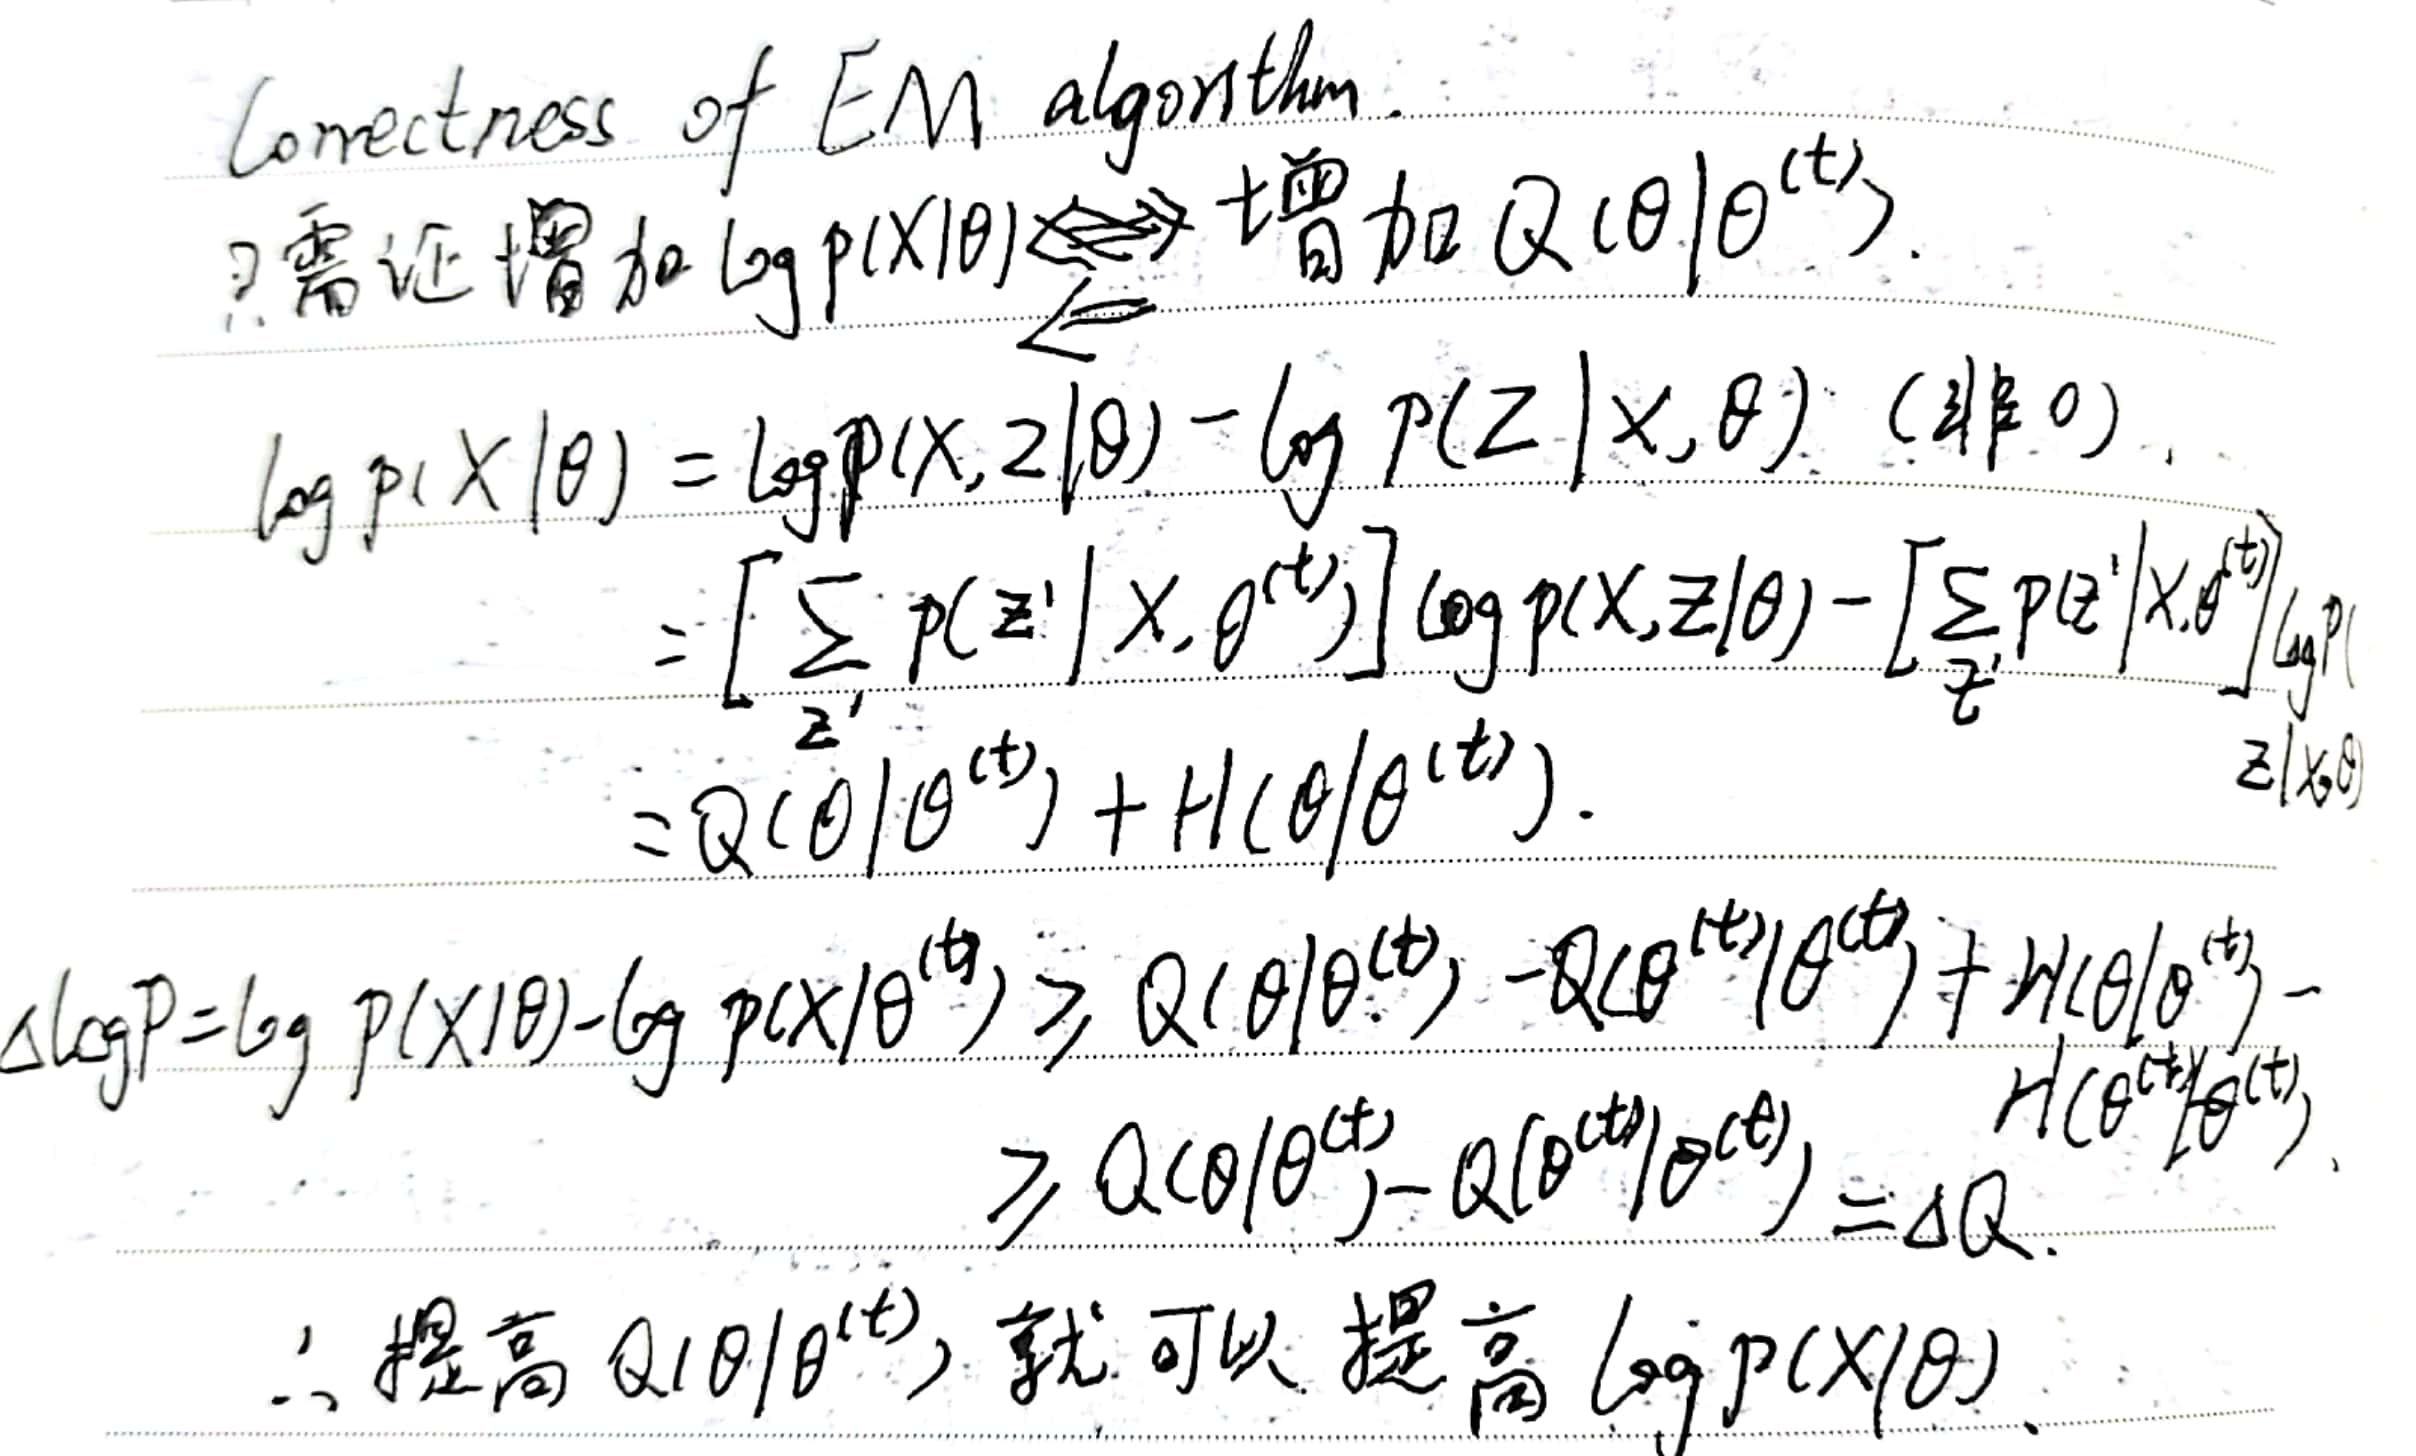 Correctness of EM algorithm.
只需证增加 log p(X|θ) ⇐ 增加 Q(θ|θ^(t)).
log p(X|θ) = log p(X, z|θ) - log P(Z|X, θ) (非0).
= [∑_{z'} p(z'|X, θ^(t))] log p(X, Z|θ) - [∑_{z'} p(z'|X, θ^(t))] log P(
z|X, θ)
= Q(θ|θ^(t)) + H(θ|θ^(t)).
Δlog P = log p(X|θ) - log p(X|θ^(t)) ≥ Q(θ|θ^(t)) - Q(θ^(t)|θ^(t)) + H(θ|θ^(t)) -
H(θ^(t)|θ^(t)).
≥ Q(θ|θ^(t)) - Q(θ^(t)|θ^(t)) = ΔQ.
∴ 提高 Q(θ|θ^(t)), 就可以提高 log p(X|θ).